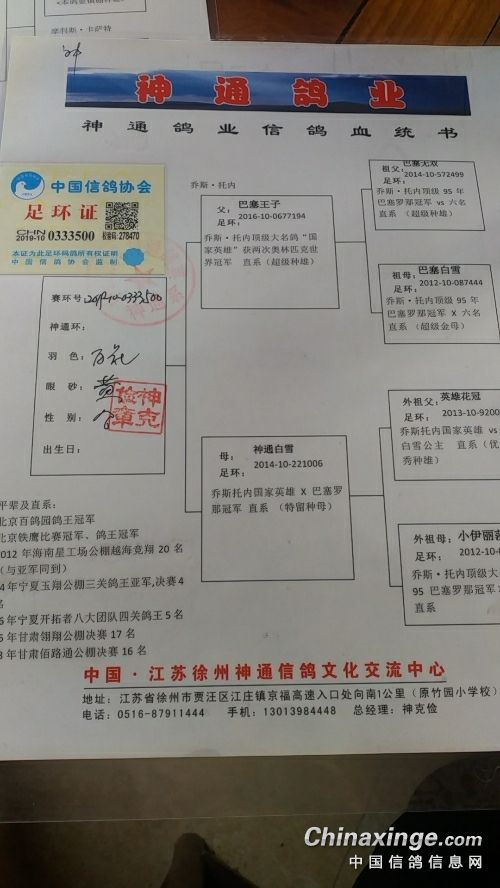 摩利斯·卡萨特
神通鸽业
神通鸽业信鸽血统书
中国信鸽协会
足环证
CHN
2019-10 0333500 校验码: 278470
本证为此足环鸽所有权证明
中国信鸽协会监制
赛环号: 2019-10-0333500
神通环:
羽 色:
眼 砂: 黄
性 别:
出生日:
神克俭章
乔斯·托内
父: 巴塞王子
足环: 2016-10-0677194
乔斯·托内顶级大名鸽“国
家英雄”获两次奥林匹克世
界冠军 直系(超级种雄)
母: 神通白雪
足环: 2014-10-221006
乔斯托内国家英雄 X 巴塞罗
那冠军 直系 (特留种母)
祖父: 巴塞无双
足环: 2014-10-572499
乔斯·托内顶级 95 年
巴塞罗那冠军 vs 六名
直系 (超级种雄)
祖母: 巴塞白雪
足环: 2012-10-087444
乔斯·托内顶级 95 年
巴塞罗那冠军 X 六名
直系 (超级金母)
外祖父: 英雄花冠
足环: 2013-10-9200
乔斯托内国家英雄 vs
白雪公主 直系(优
秀种雄)
外祖母: 小伊丽莎
足环: 2012-10-0
乔斯·托内顶级大
95 巴塞罗那冠军
直系
平辈及直系:
北京百鸽园鸽王冠军
北京铁鹰比赛冠军、鸽王冠军
2012 年海南星工场公棚越海竞翔 20 名
(与亚军同到)
4 年宁夏玉翔公棚三关鸽王亚军,决赛 4
名
6 年宁夏开拓者八大团队四关鸽王 5 名
6 年甘肃翎翔公棚决赛 17 名
8 年甘肃佰路通公棚决赛 16 名
中国·江苏徐州神通信鸽文化交流中心
地址: 江苏省徐州市贾汪区江庄镇京福高速入口处向南1公里 (原竹园小学校)
电话: 0516-87911444 手机: 13013984448 总经理: 神克俭
Chinaxinge.com
中国信鸽信息网